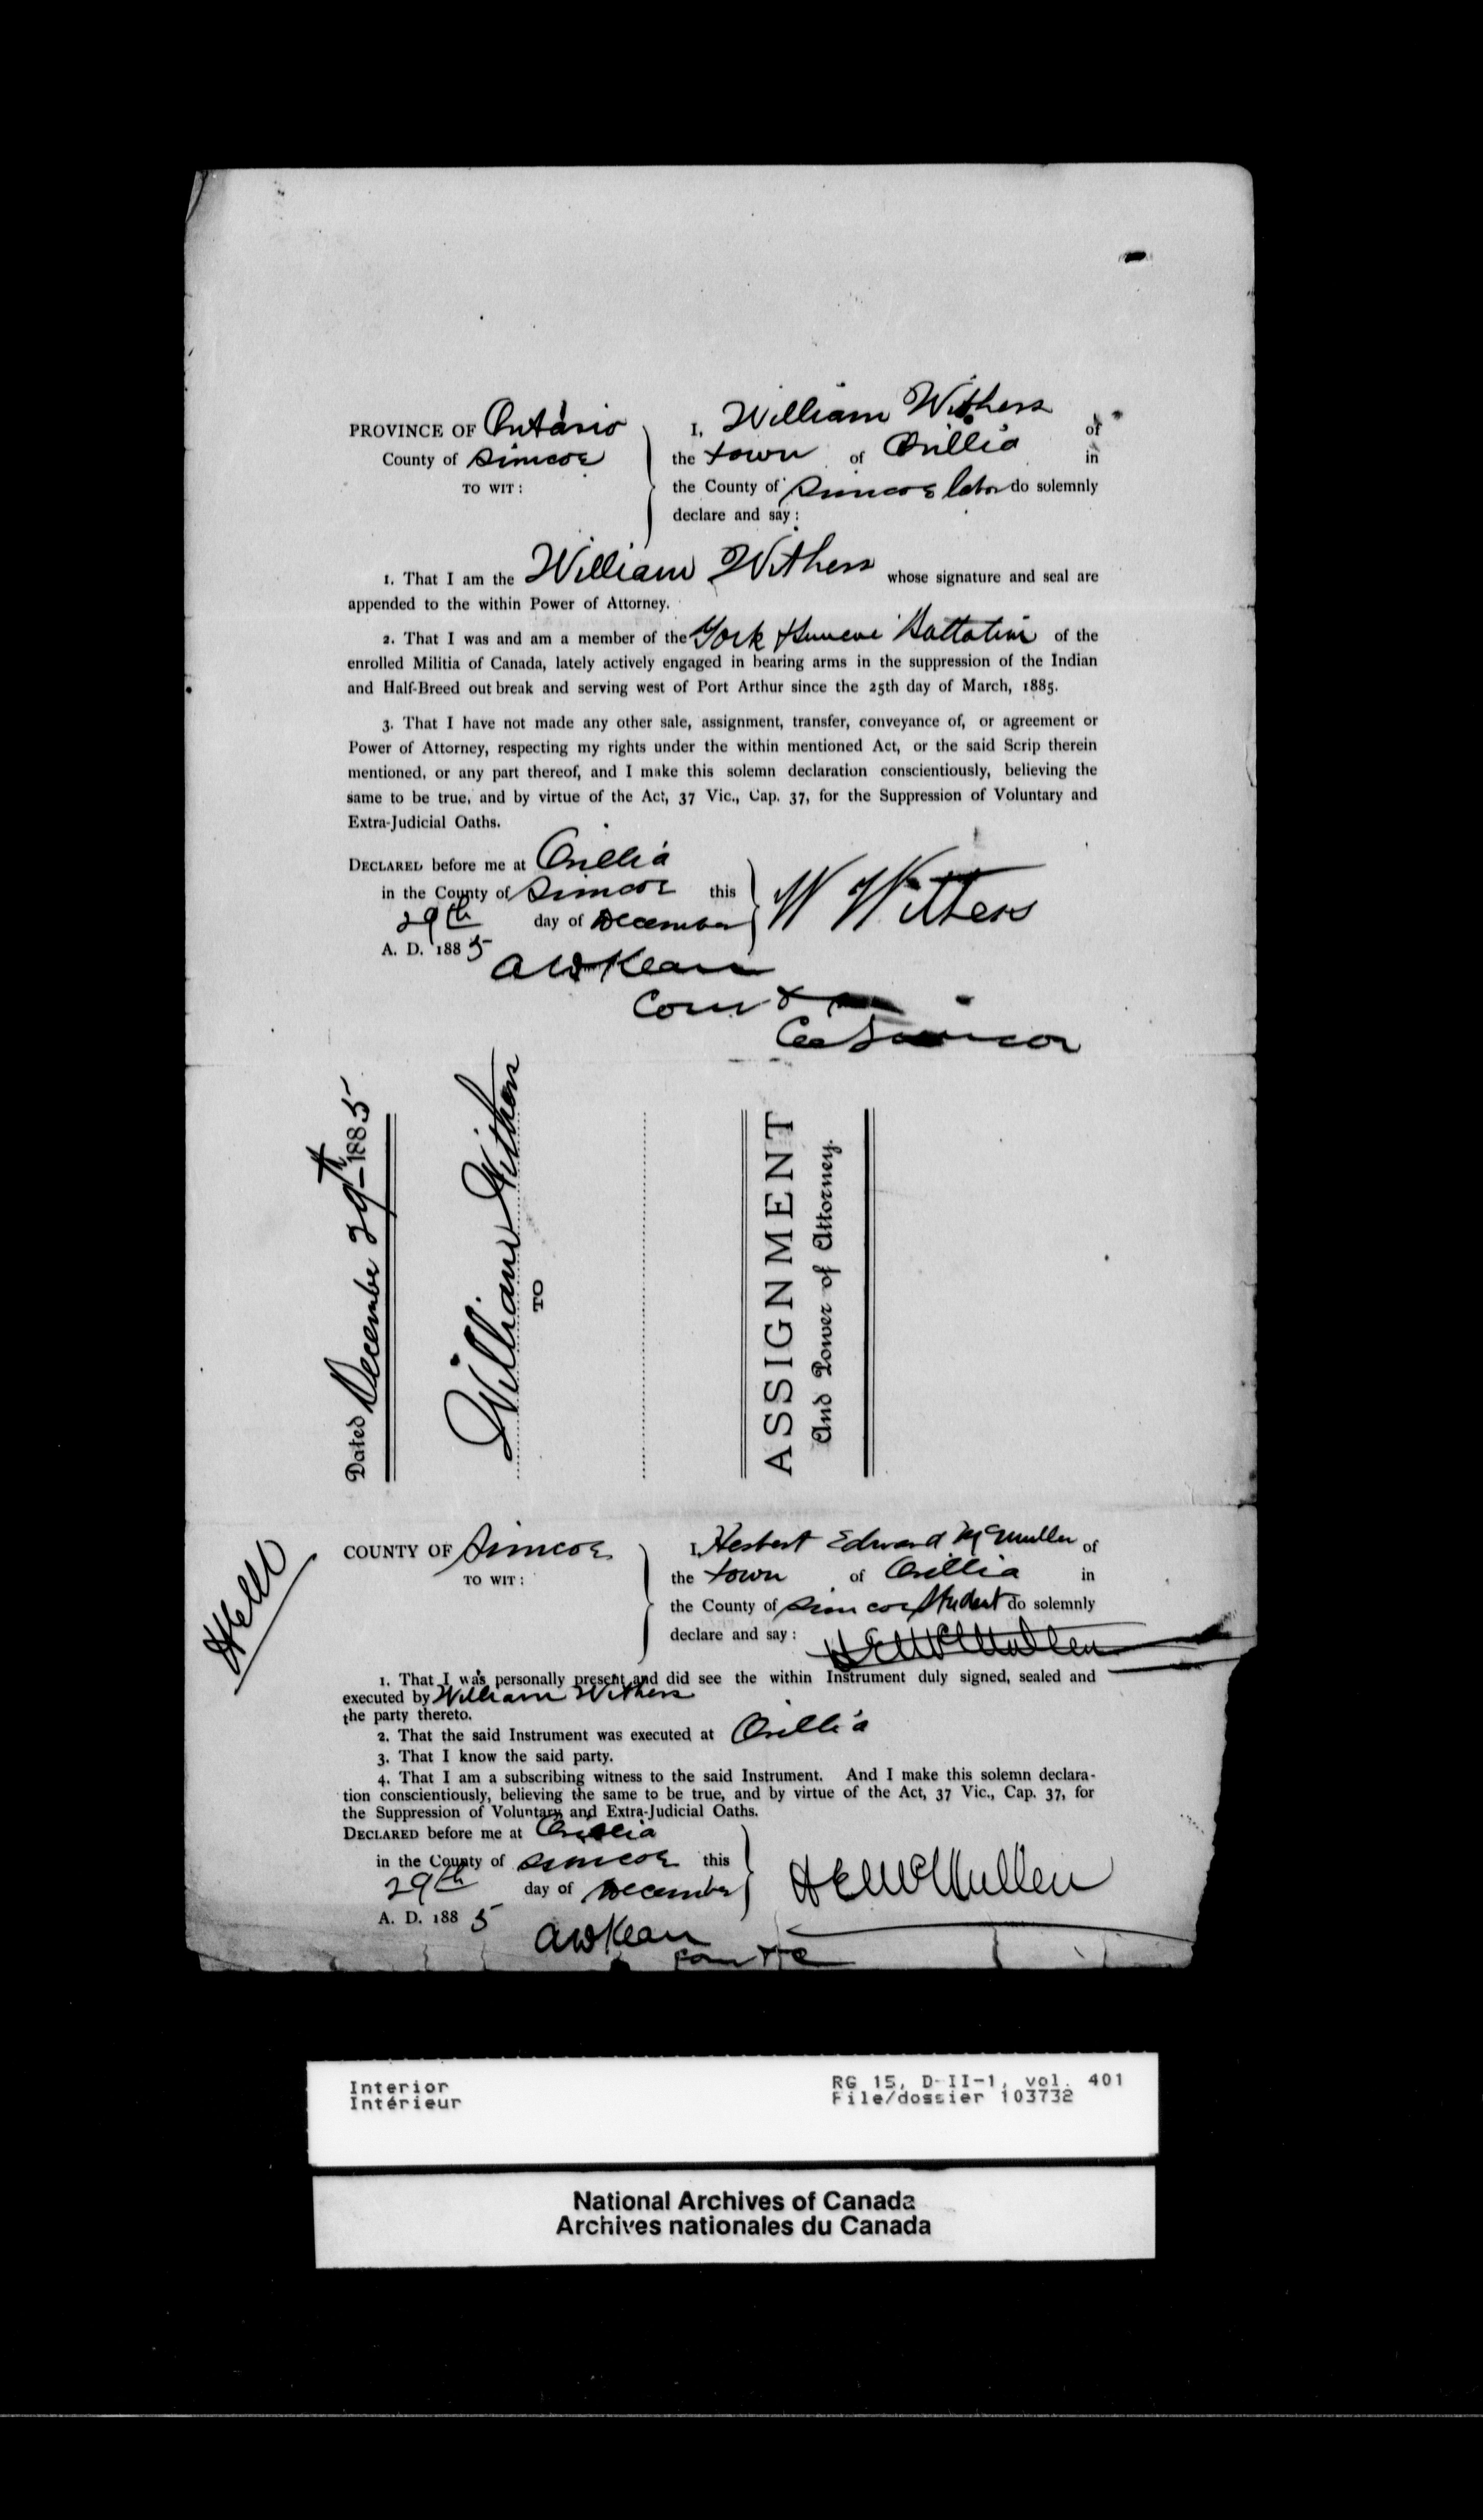 PROVINCE OF Ontario
County of Simcoe
TO WIT:
I, William Withers of
the town of Orillia in
the County of Simcoe labor do solemnly
declare and say:
1. That I am the William Withers whose signature and seal are
appended to the within Power of Attorney.
2. That I was and am a member of the York & Simcoe Battalion of the
enrolled Militia of Canada, lately actively engaged in bearing arms in the suppression of the Indian
and Half-Breed out break and serving west of Port Arthur since the 25th day of March, 1885.
3. That I have not made any other sale, assignment, transfer, conveyance of, or agreement or
Power of Attorney, respecting my rights under the within mentioned Act, or the said Scrip therein
mentioned, or any part thereof, and I make this solemn declaration conscientiously, believing the
same to be true, and by virtue of the Act, 37 Vic., Cap. 37, for the Suppression of Voluntary and
Extra-Judicial Oaths.
DECLARED before me at Orillia
in the County of Simcoe this
29th day of December
A. D. 1885
W Withers
A W Kean
Com
Co Simcoe
Dated December 29th 1885
William Withers
TO
ASSIGNMENT
And Power of Attorney.
HEMc
COUNTY OF Simcoe
TO WIT:
I, Herbert Edward McMullen of
the town of Orillia in
the County of Simcoe Student do solemnly
declare and say:
HEMcMullen
1. That I was personally present and did see the within Instrument duly signed, sealed and
executed by William Withers
the party thereto.
2. That the said Instrument was executed at Orillia
3. That I know the said party.
4. That I am a subscribing witness to the said Instrument. And I make this solemn declara-
tion conscientiously, believing the same to be true, and by virtue of the Act, 37 Vic., Cap. 37, for
the Suppression of Voluntary and Extra-Judicial Oaths.
DECLARED before me at Orillia
in the County of Simcoe this
29th day of December
A. D. 1885
HEMcMullen
A W Kean
Com
Interior
Intérieur
RG 15, D-II-1, vol. 401
File/dossier 103732
National Archives of Canada
Archives nationales du Canada